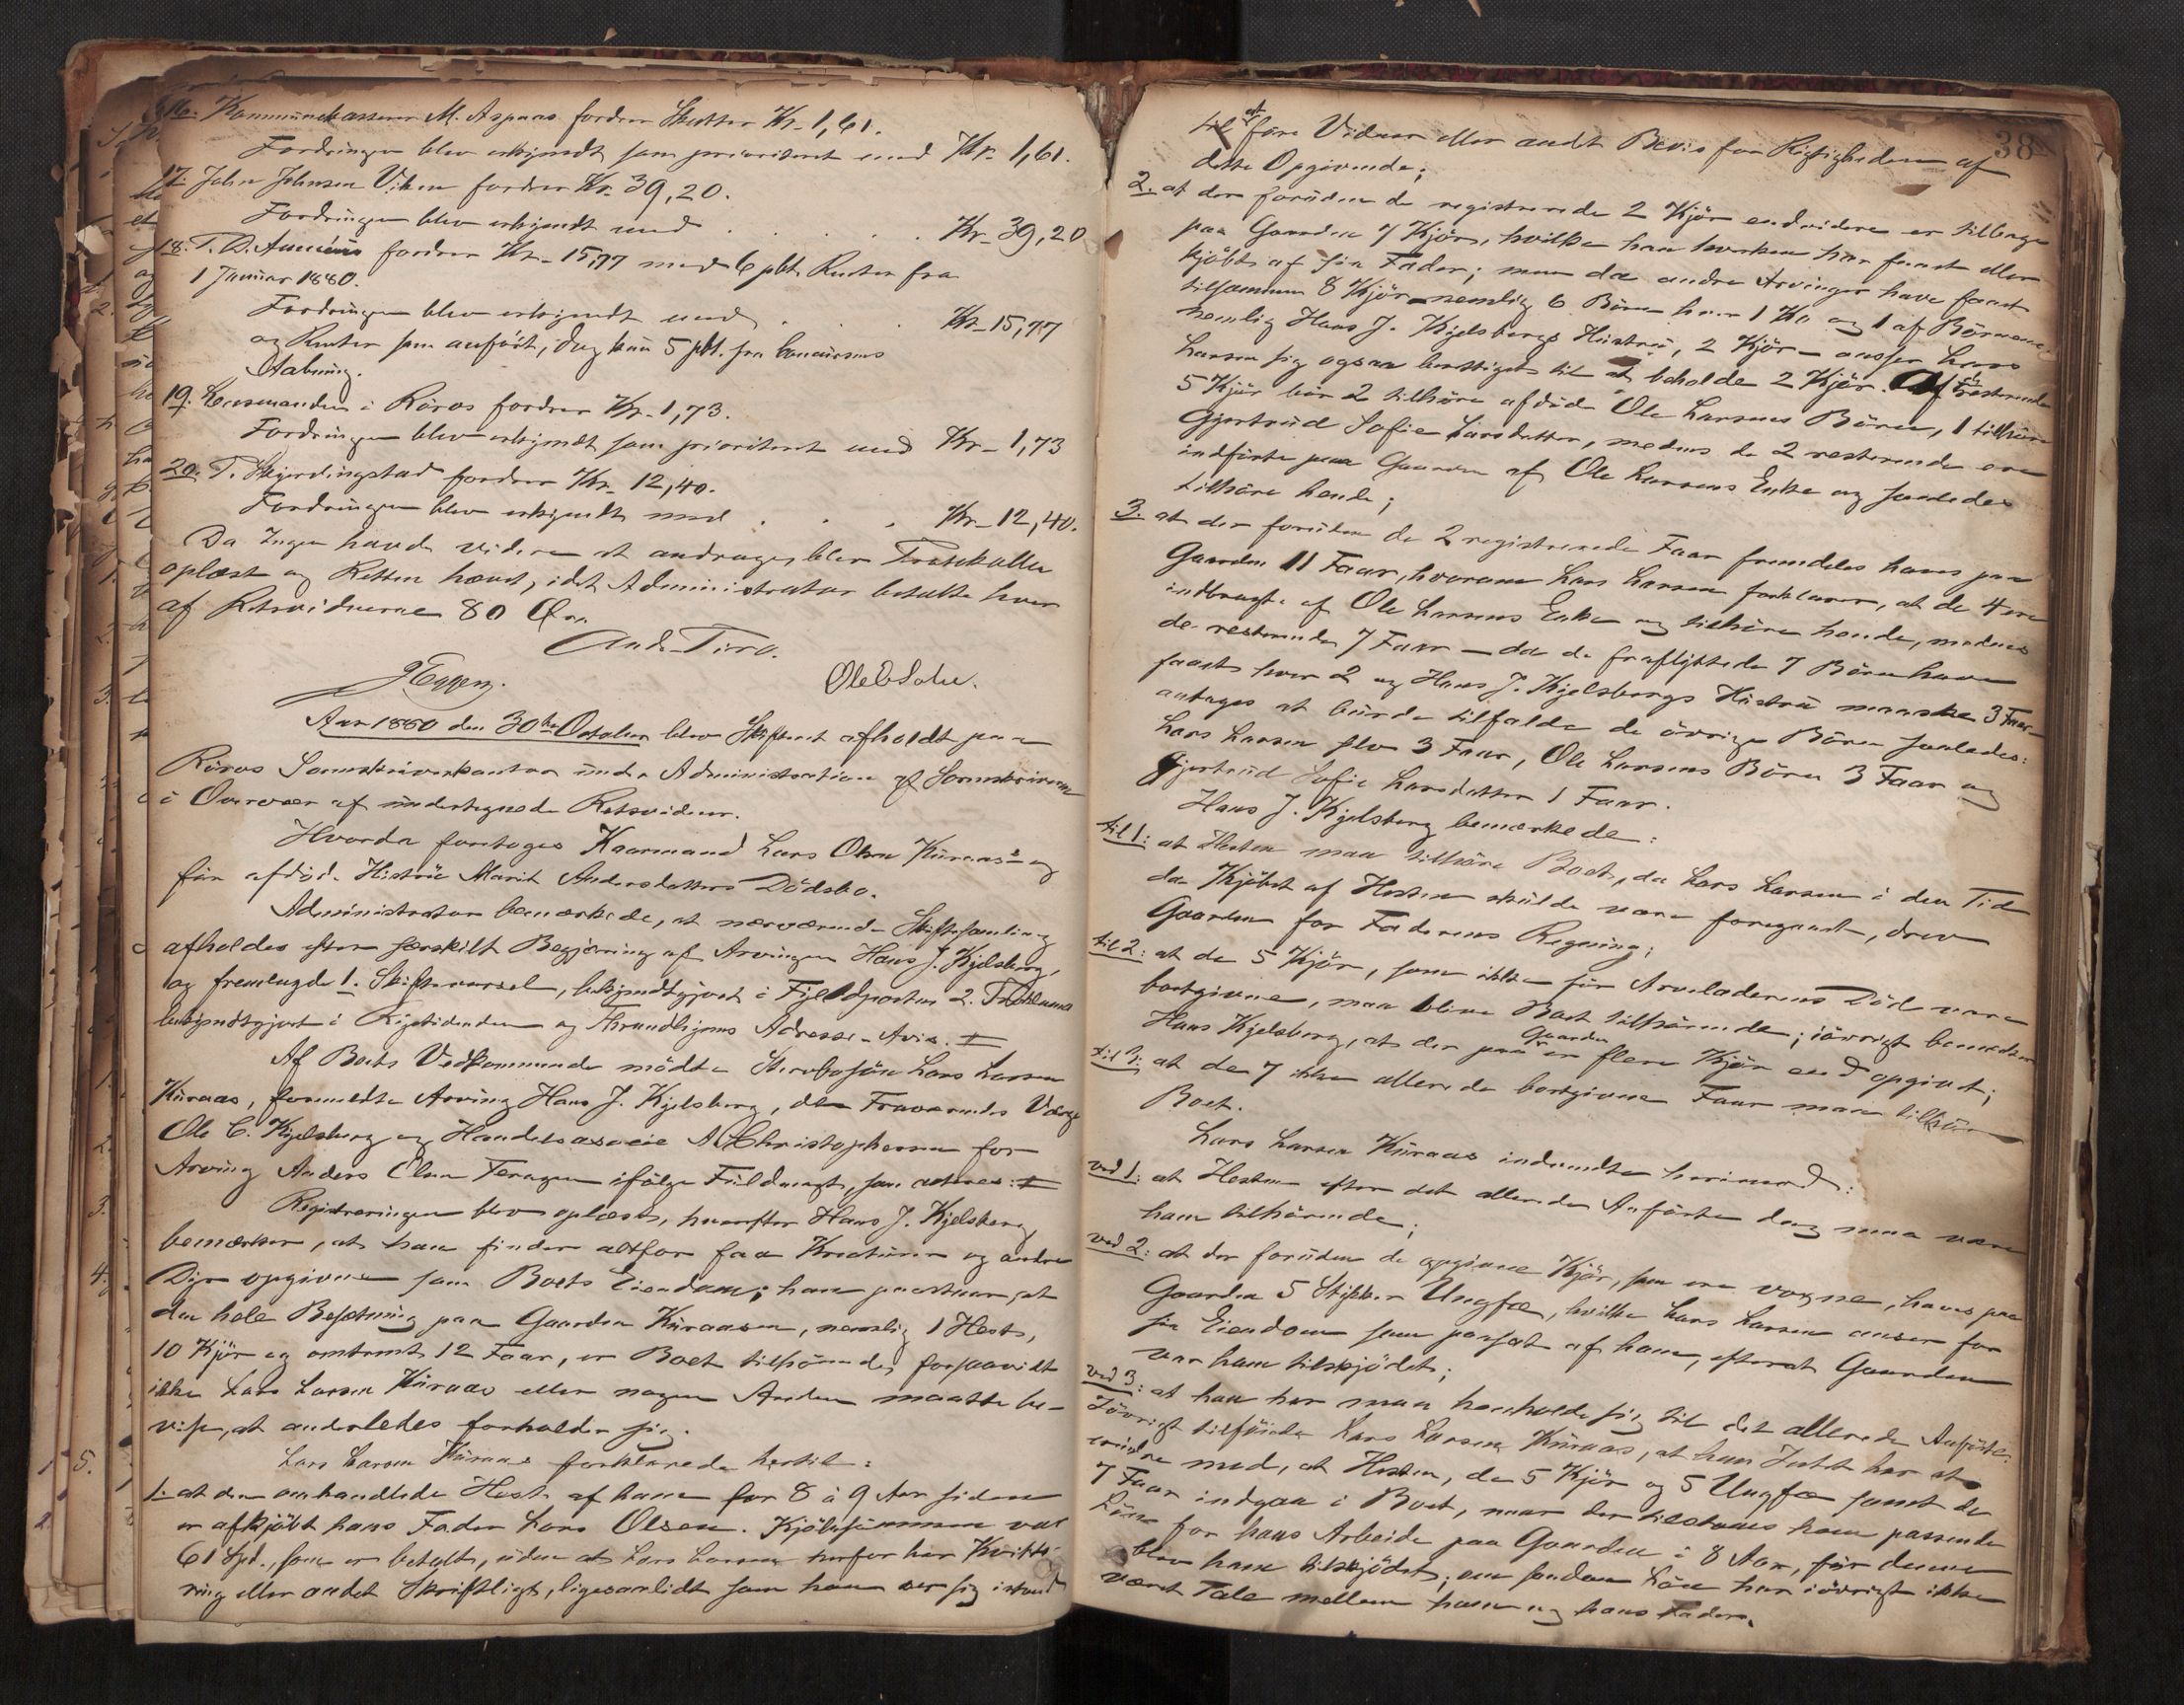 16. Kommunekasserer M. Aspaas fordrer Skatter Kr. 1,61.
Fordringen blev erkjendt som prioriteret med Kr. 1,61.
17. John Johnsen Viken fordrer Kr. 39,20.
Fordringen blev erkjendt med . . . . . Kr. 39,20
18. T. D. fordrer Kr. 15,77 med 6 pCt. Renter fra
1 Januar 1880.
Fordringen blev erkjendt med . . . Kr. 15,77
og Renter som anført, dog kun 5 pCt. fra Concursens
Aabning.
19. Lensmanden i Röros fordrer Kr. 1,73.
Fordringen blev erkjendt som prioriteret med Kr. 1,73
20. T. Skjerdingstad fordrer Kr. 12,40.
Fordringen blev erkjendt med . . . Kr. 12,40.
Da Ingen havde videre at andrage, blev Protokollen
oplæst og Retten hævet, idet Administrator betalte hver
af Retsvidnerne 80 Öre.
And. Tiro.
Heggen. Ole
Aar 1880 den 30te October blev Skifteret afholdt paa
Röros Sorenskriverkontor under Administration af Sorenskriveren
i Overvær af undertegnede Retsvidner.
Hvorda foretoges Kaarmand Lars Olsen Kuraas's og
før afdöde Hustru Marit Andersdatters Dödsbo.
Administrator bemærkede, at nærværende Skiftesamling
afholdes efter særskilt Begjæring af Arvingen Hans J. Kjelsberg,
og fremlagde 1. Skiftevarsel, bekjendtgjort i Fjeldposten 2. Proklama
bekjendtgjort i Rigstidenden og Throndhjems Adresse-Avis.
Af Boets Vedkommende mödte Stervbosön Lars Larsen
Kuraas, formeldte Arving Hans J. Kjelsberg, den Fraværendes Værge
Ole C. Kjelsberg og Handelsasocie A. Christophersen for
Arving Anders Olsen Teragen ifölge Fuldmagt, som acteres:
Registreringen blev oplæst, hvorefter Hans J. Kjelsberg
bemærker, at han finder altfor faa Kreaturer og andre
Dyr opgivne som Boets Eiendom; han paastaar, at
den hele Besætning paa Gaarden Kuraasen, nemlig 1 Hest,
10 Kjör og omtrent 12 Faar, er Boet tilhörende, forsaavidt
ikke Lars Larsen Kuraas eller nogen Anden maatte be-
vise, at anderledes forholder sig.
Lars Larsen Kuraas forklarede hertil:
1. at den omhandlede Hest af ham for 8 à 9 Aar siden
er afkjöbt hans Fader Lars Olsen. Kjöbesummen var
61 Spd., som er betalt, uden at Lars Larsen herfor har Kvitte-
ring eller andet Skriftligt, ligesaalidt som han ser sig istand
38
til at före Vidner eller andt Bevis for Rigtigheden af
dette Opgivende;
2. at der foruden de registrerede 2 Kjör endvidere er tilbage
paa Gaarden 7 Kjör, hvilke han hverken har faaet eller
kjöbt af sin Fader; men da andre Arvinger have faaet
tilsammen 8 Kjör – nemlig 6 Börn hver 1 Ko og 1 af Börnene,
nemlig Hans J. Kjelsbergs Hustru, 2 Kjör – anser Lars
Larsen sig ogsaa berettiget til at beholde 2 Kjör. Af de resterende
5 Kjör bör 2 tilhöre afdöde Ole Larsens Börn, 1 tilhöre
Gjertrud Sofie Larsdatter, medens de 2 resterende ere
indförte paa Gaarden af Ole Larsens Enke og saaledes
tilhöre hende;
3. at der foruden de 2 registrerede Faar fremdeles haves paa
Gaarden 11 Faar, hvorom Lars Larsen forklarer, at de 4 ere
indbragte af Ole Larsens Enke og tilhöre hende, medens
de resterende 7 Faar – da de fraflyttede 7 Börn have
faaet hver 2 og Hans J. Kjelsbergs Hustru maaske 3 Faar –
antages at burde tilfalde de övrige Börn saaledes:
Lars Larsen selv 3 Faar, Ole Larsens Börn 3 Faar og
Gjertrud Sofie Larsdatter 1 Faar.
Hans J. Kjelsberg bemærkede:
til 1: at Hesten maa tilhöre Boet, da Lars Larsen i den Tid
da Kjöbet af Hesten skulde være foregaaet, drev
Gaarden for Faderens Regning;
til 2: at de 5 Kjör, som ikke før Arveladerens Död vare
bortgivne, maa blive Boet tilhörende; iövrigt bemærker
Hans Kjelsberg, at der paa Gaarden er flere Kjör end opgivet;
til 3: at de 7 ikke allerede bortgivne Faar maa tilhöre
Boet.
Lars Larsen Kuraas indvendte herimod:
ved 1: at Hesten efter det allerede Anförte dog maa være
ham tilhörende;
ved 2: at der foruden de opgivne Kjör, som ere voxne, haves paa
Gaarden 5 Stykker Ungfæ, hvilke Lars Larsen anser for
sin Eiendom som paasat af ham, efterat Gaarden
var ham tilskjödet;
ved 3: at han her maa henholde sig til det allerede Anförte.
Iövrigt tilföiede Lars Larsen Kuraas, at han Intet har at
erindre mod, at Hesten, de 5 Kjör og 5 Ungfæ samt de
7 Faar indgaa i Boet, naar der tilstaaes ham passende
Lön for hans Arbeide paa Gaarden i 8 Aar, för denne
blev ham tilskjödet; om saadan Lön har iövrigt ikke
været Tale mellem ham og hans Fader.